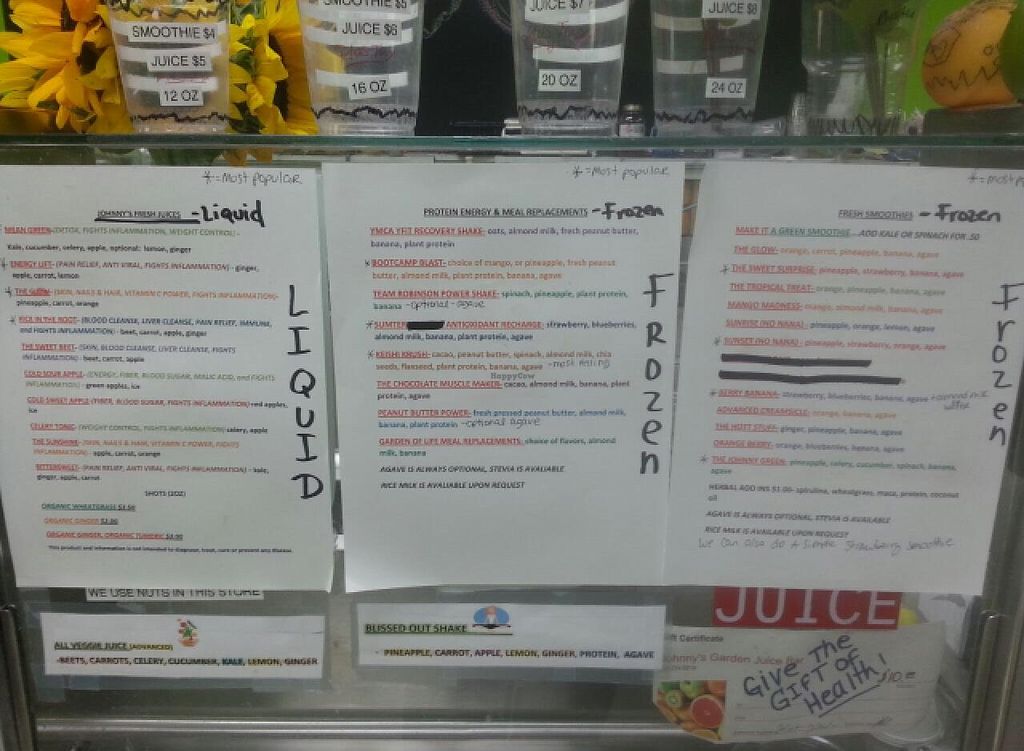 SMOOTHIE $4
JUICE $5
12 OZ
SMOOTHIE $5
JUICE $6
16 OZ
JUICE $7
20 OZ
JUICE $8
24 OZ
*=Most popular
JOHNNY'S FRESH JUICES -Liquid
MEAN GREEN-(DETOX, FIGHTS INFLAMMATION, WEIGHT CONTROL) -
Kale, cucumber, celery, apple, optional: lemon, ginger
* ENERGY LIFT- (PAIN RELIEF, ANTI VIRAL, FIGHTS INFLAMMATION) - ginger,
apple, carrot, lemon
* THE GLOW- (SKIN, NAILS & HAIR, VITAMIN C POWER, FIGHTS INFLAMMATION)-
pineapple, carrot, orange
* KICK IN THE ROOT- (BLOOD CLEANSE, LIVER CLEANSE, PAIN RELIEF, IMMUNE,
and FIGHTS INFLAMMATION) - beet, carrot, apple, ginger
THE SWEET BEET- (SKIN, BLOOD CLEANSE, LIVER CLEANSE, FIGHTS
INFLAMMATION) - beet, carrot, apple
COLD SOUR APPLE- (ENERGY, FIBER, BLOOD SUGAR, MALIC ACID, and FIGHTS
INFLAMMATION) - green apples, ice
COLD SWEET APPLE-(FIBER, BLOOD SUGAR, FIGHTS INFLAMMATION) red apples,
ice
CELERY TONIC- (WEIGHT CONTROL, FIGHTS INFLAMMATION) celery, apple
THE SUNSHINE- (SKIN, NAILS & HAIR, VITAMIN C POWER, FIGHTS
INFLAMMATION) - apple, carrot, orange
BITTERSWEET- (PAIN RELIEF, ANTI VIRAL, FIGHTS INFLAMMATION) - kale,
ginger, apple, carrot
SHOTS (2OZ)
ORGANIC WHEATGRASS $2.50
ORGANIC GINGER $2.00
ORGANIC GINGER, ORGANIC TUMERIC $3.00
This product and information is not intended to diagnose, treat, cure or prevent any disease.
LIQUID
*=Most popular
PROTEIN ENERGY & MEAL REPLACEMENTS -Frozen
YMCA YFIT RECOVERY SHAKE- oats, almond milk, fresh peanut butter,
banana, plant protein
* BOOTCAMP BLAST- choice of mango, or pineapple, fresh peanut
butter, almond milk, plant protein, banana, agave
TEAM ROBINSON POWER SHAKE- spinach, pineapple, plant protein,
banana -optional-agave
* SUMTER ANTIOXIDANT RECHARGE- strawberry, blueberries,
almond milk, banana, plant protein, agave
* KEISHI KRUSH- cacao, peanut butter, spinach, almond milk, chia
seeds, flaxseed, plant protein, banana, agave -most filling
HappyCow
THE CHOCOLATE MUSCLE MAKER- cacao, almond milk, banana, plant
protein, agave
PEANUT BUTTER POWER- fresh pressed peanut butter, almond milk,
banana, plant protein -optional agave
GARDEN OF LIFE MEAL REPLACEMENTS- choice of flavors, almond
milk, banana
AGAVE IS ALWAYS OPTIONAL, STEVIA IS AVALIABLE
RICE MILK IS AVALIABLE UPON REQUEST
Frozen
*=most
FRESH SMOOTHIES - Frozen
MAKE IT A GREEN SMOOTHIE - ADD KALE OR SPINACH FOR .50
THE GLOW- orange, carrot, pineapple, banana, agave
* THE SWEET SURPRISE- pineapple, strawberry, banana, agave
THE TROPICAL TREAT- orange, pineapple, banana, agave
MANGO MADNESS- mango, almond milk, banana, agave
SUNRISE (NO NANA) - pineapple, orange, lemon, agave
* SUNSET (NO NANA) - pineapple, strawberry, orange, agave
* BERRY BANANA- strawberry, blueberries, banana, agave + almond milk
water
ADVANCED CREAMSICLE- orange, banana, agave
THE HOTT STUFF- ginger, pineapple, banana, agave
ORANGE BERRY- orange, blueberries, banana, agave
* THE JOHNNY GREEN- pineapple, celery, cucumber, spinach, banana,
agave
HERBAL ADD INS $1.00- spirulina, wheatgrass, maca, protein, coconut
oil
AGAVE IS ALWAYS OPTIONAL, STEVIA IS AVALIABLE
RICE MILK IS AVAILABLE UPON REQUEST
We can also do a simple strawberry smoothie
Frozen
WE USE NUTS IN THIS STORE
ALL VEGGIE JUICE (ADVANCED)
-BEETS, CARROTS, CELERY, CUCUMBER, KALE, LEMON, GINGER
BLISSED OUT SHAKE
- PINEAPPLE, CARROT, APPLE, LEMON, GINGER, PROTEIN, AGAVE
JUICE
Gift Certificate
Johnny's Garden Juice Bar
Give The
GIFT of
Health!